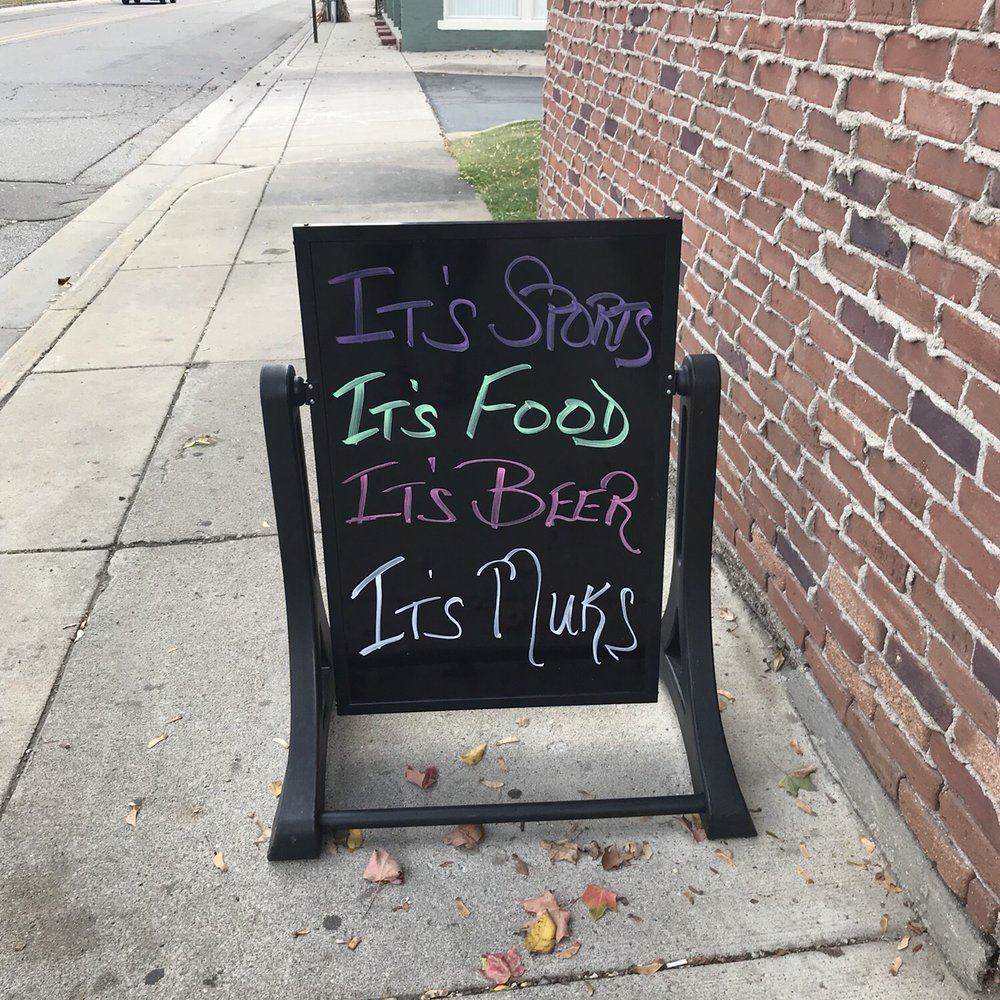 It's Sports
It's Food
It's Beer
It's Muks